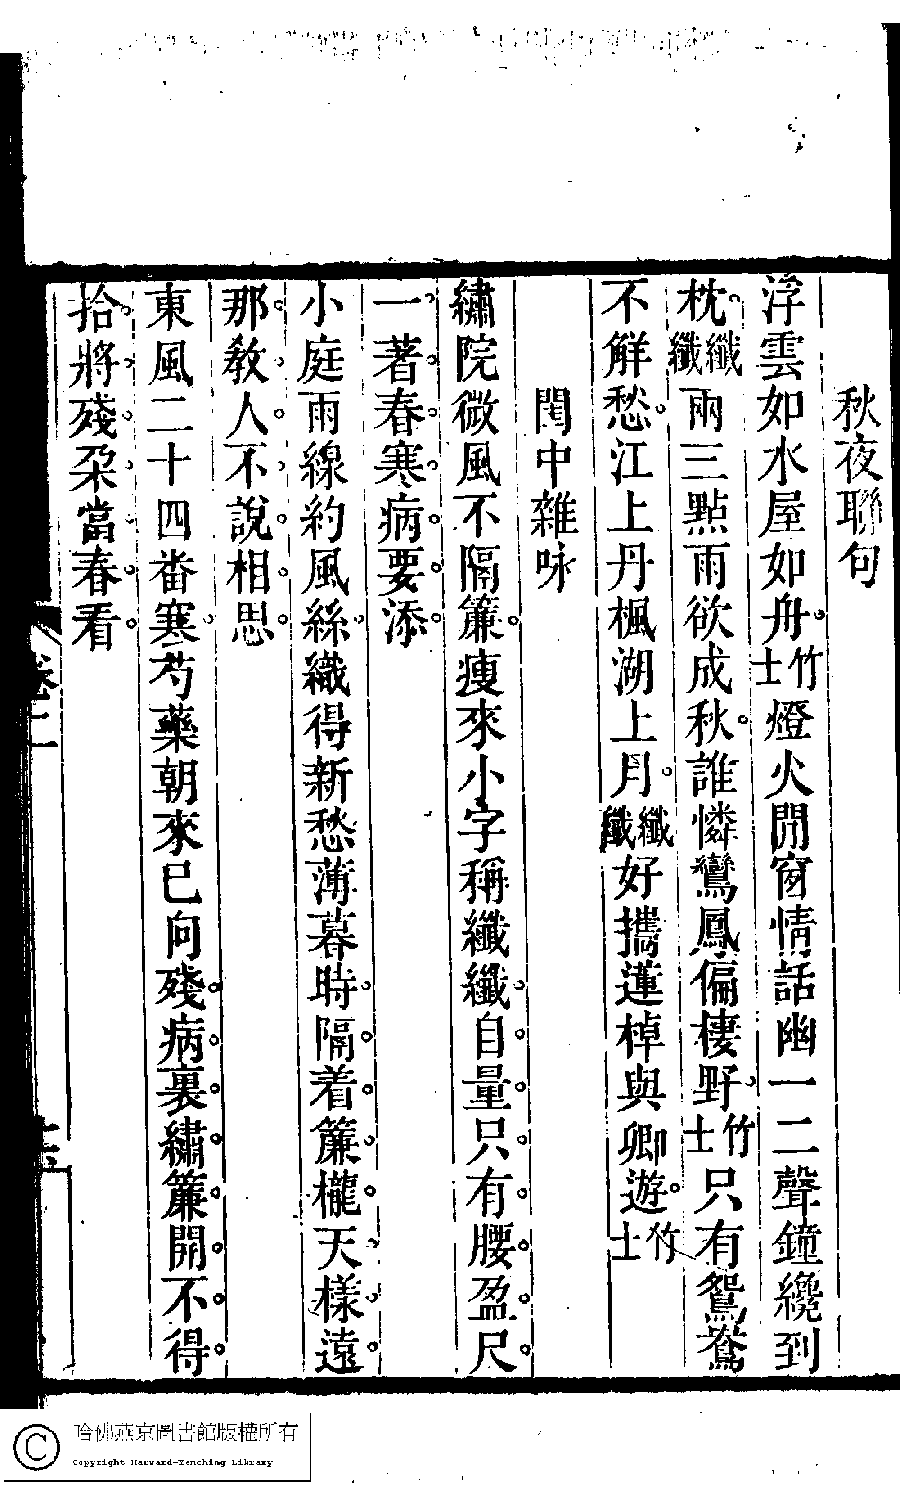 秋夜聯句
浮雲如水屋如舟竹士燈火閒窗情話幽一二聲鐘纔到
枕纖纖兩三點雨欲成秋誰憐鸞鳳偏棲野竹士只有鴛鴦
不解愁江上丹楓湖上月纖纖好攜蓮棹與卿遊竹士
閨中雜咏
繡院微風不隔簾瘦來小字稱纖纖自量只有腰盈尺
一著春寒病要添
小庭雨線約風絲織得新愁薄暮時隔着簾櫳天樣遠
那教人不說相思
東風二十四番寒芍藥朝來已向殘病裏繡簾開不得
拾將殘朶當春看
卷二
哈佛燕京圖書館版權所有
Copyright Harvard-Yenching Library